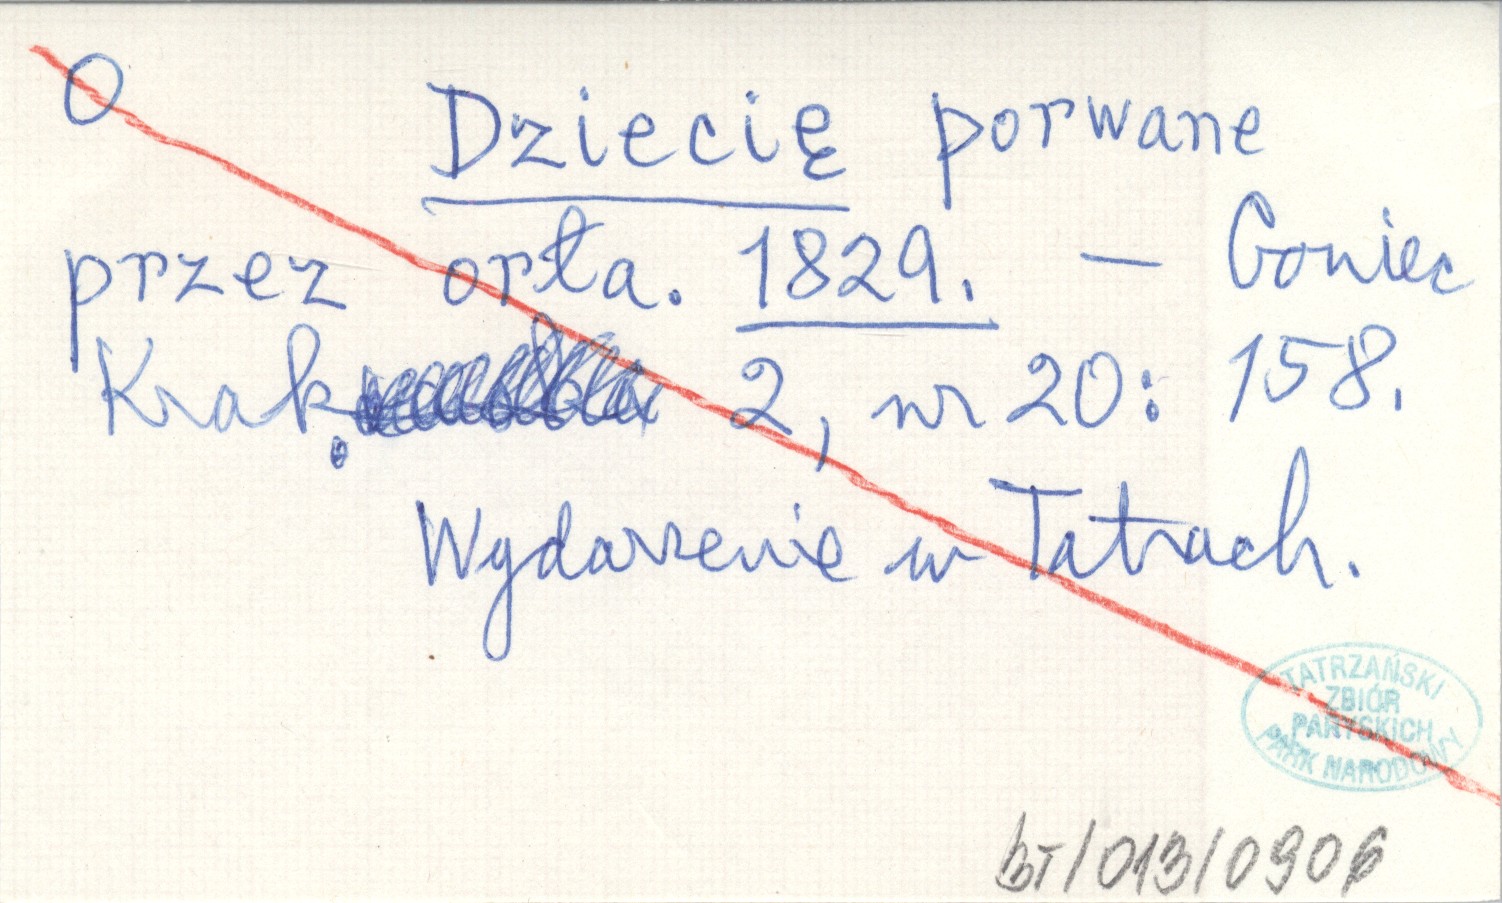 O Dziecię porwane
przez orła. 1829. — Goniec
Krak. 2, nr 20: 158.
Wydarzenie w Tatrach.
TATRZAŃSKI
ZBIÓR
PARYSKICH
PARK NARODOWY
bT/013/0906